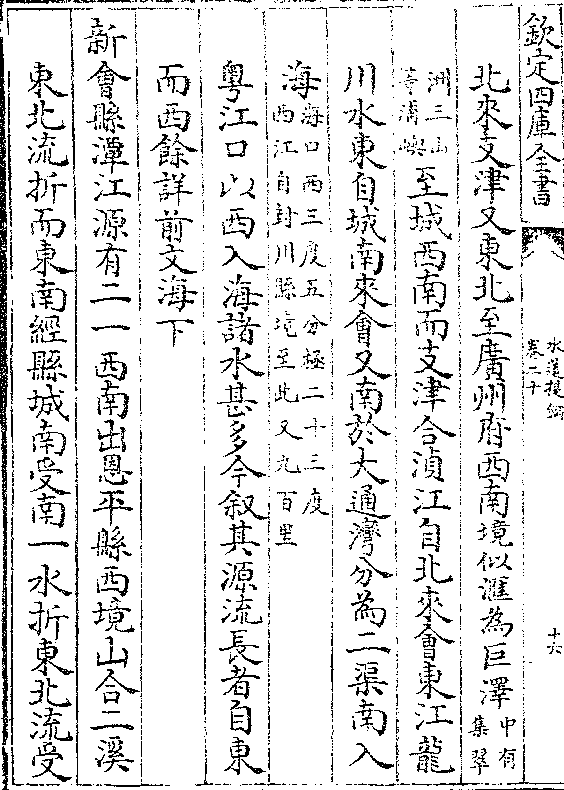 欽定四庫全書
水道提綱
卷二十
十六
北來支津又東北至廣州府西南境似滙為巨澤中有集翠
洲三山等溝嶼至城西南而支津合湞江自北來會東江龍
川水東自城南來會又南於大通灣分為二渠南入
海海口西三度五分極二十三度西江自封川縣境至此又九百里
粤江口以西入海諸水甚多今叙其源流長者自東
而西餘詳前文海下
新會縣潭江源有二一西南出恩平縣西境山合二溪
東北流折而東南經縣城南受南一水折東北流受